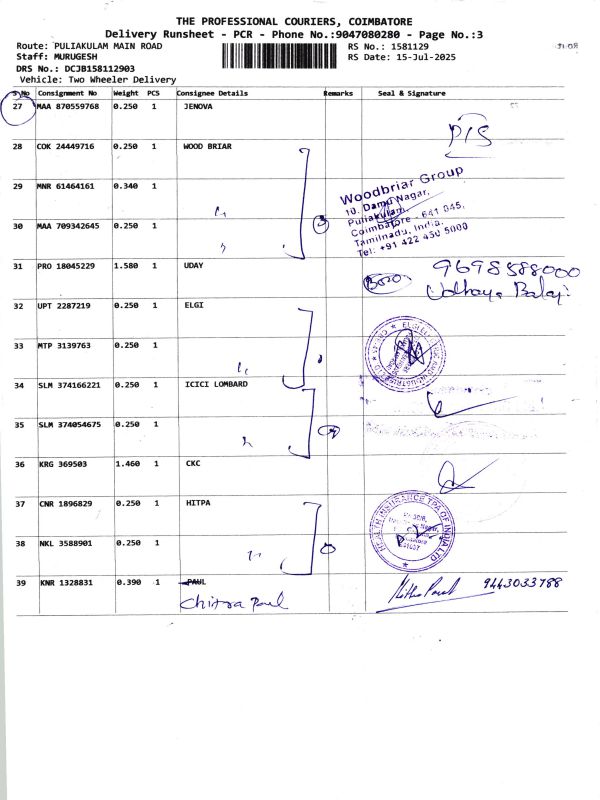 THE PROFESSIONAL COURIERS, COIMBATORE
Delivery Runsheet - PCR - Phone No.:9047080280 - Page No.:3
Route: PULIAKULAM MAIN ROAD RS No.: 1581129
Staff: MURUGESH RS Date: 15-Jul-2025
DRS No.: DCJB158112903
Vehicle: Two Wheeler Delivery
S No Consignment No Weight PCS Consignee Details Remarks Seal & Signature
27 MAA 870559768 0.250 1 JENOVA
28 COK 24449716 0.250 1 WOOD BRIAR
29 MNR 61464161 0.340 1
Woodbriar Group
10. Damu Nagar,
Puliakulam,
Coimbatore - 641 045,
Tamilnadu, India.
Tel: +91 422 450 5000
30 MAA 709342645 0.250 1
31 PRO 18045229 1.580 1 UDAY 9698588000
Udhaya Balaji
32 UPT 2287219 0.250 1 ELGI
33 MTP 3139763 0.250 1
34 SLM 374166221 0.250 1 ICICI LOMBARD
35 SLM 374054675 0.250 1
36 KRG 369503 1.460 1 CKC
37 CNR 1896829 0.250 1 HITPA
HEALTH INSURANCE TPA OF INDIA LTD
38 NKL 3588901 0.250 1
39 KNR 1328831 0.390 1 PAUL 9443033788
Chitra Paul